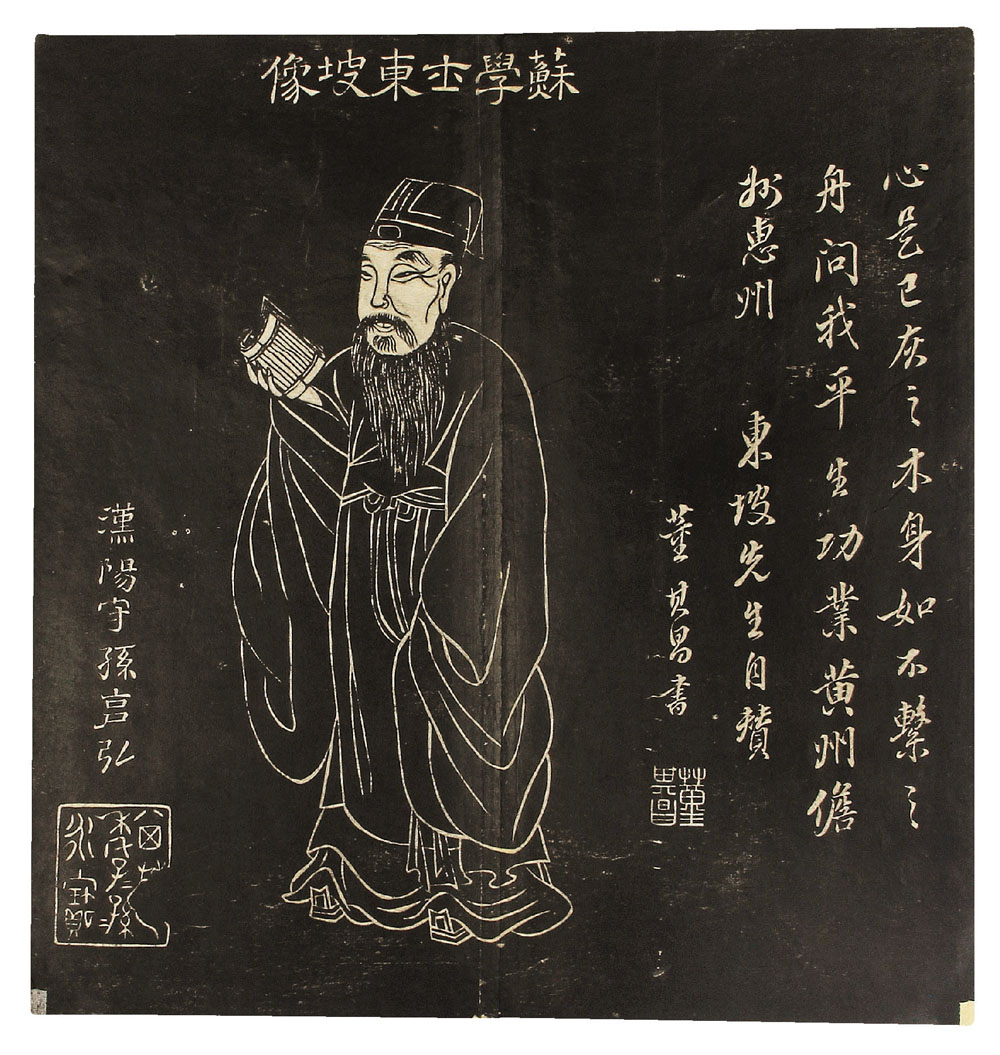 蘇學士東坡像
心是已灰之木身如不繫之
舟問我平生功業黄州儋
州惠州 東坡先生自贊
董其昌書
董其昌
漢陽守孫亯弘